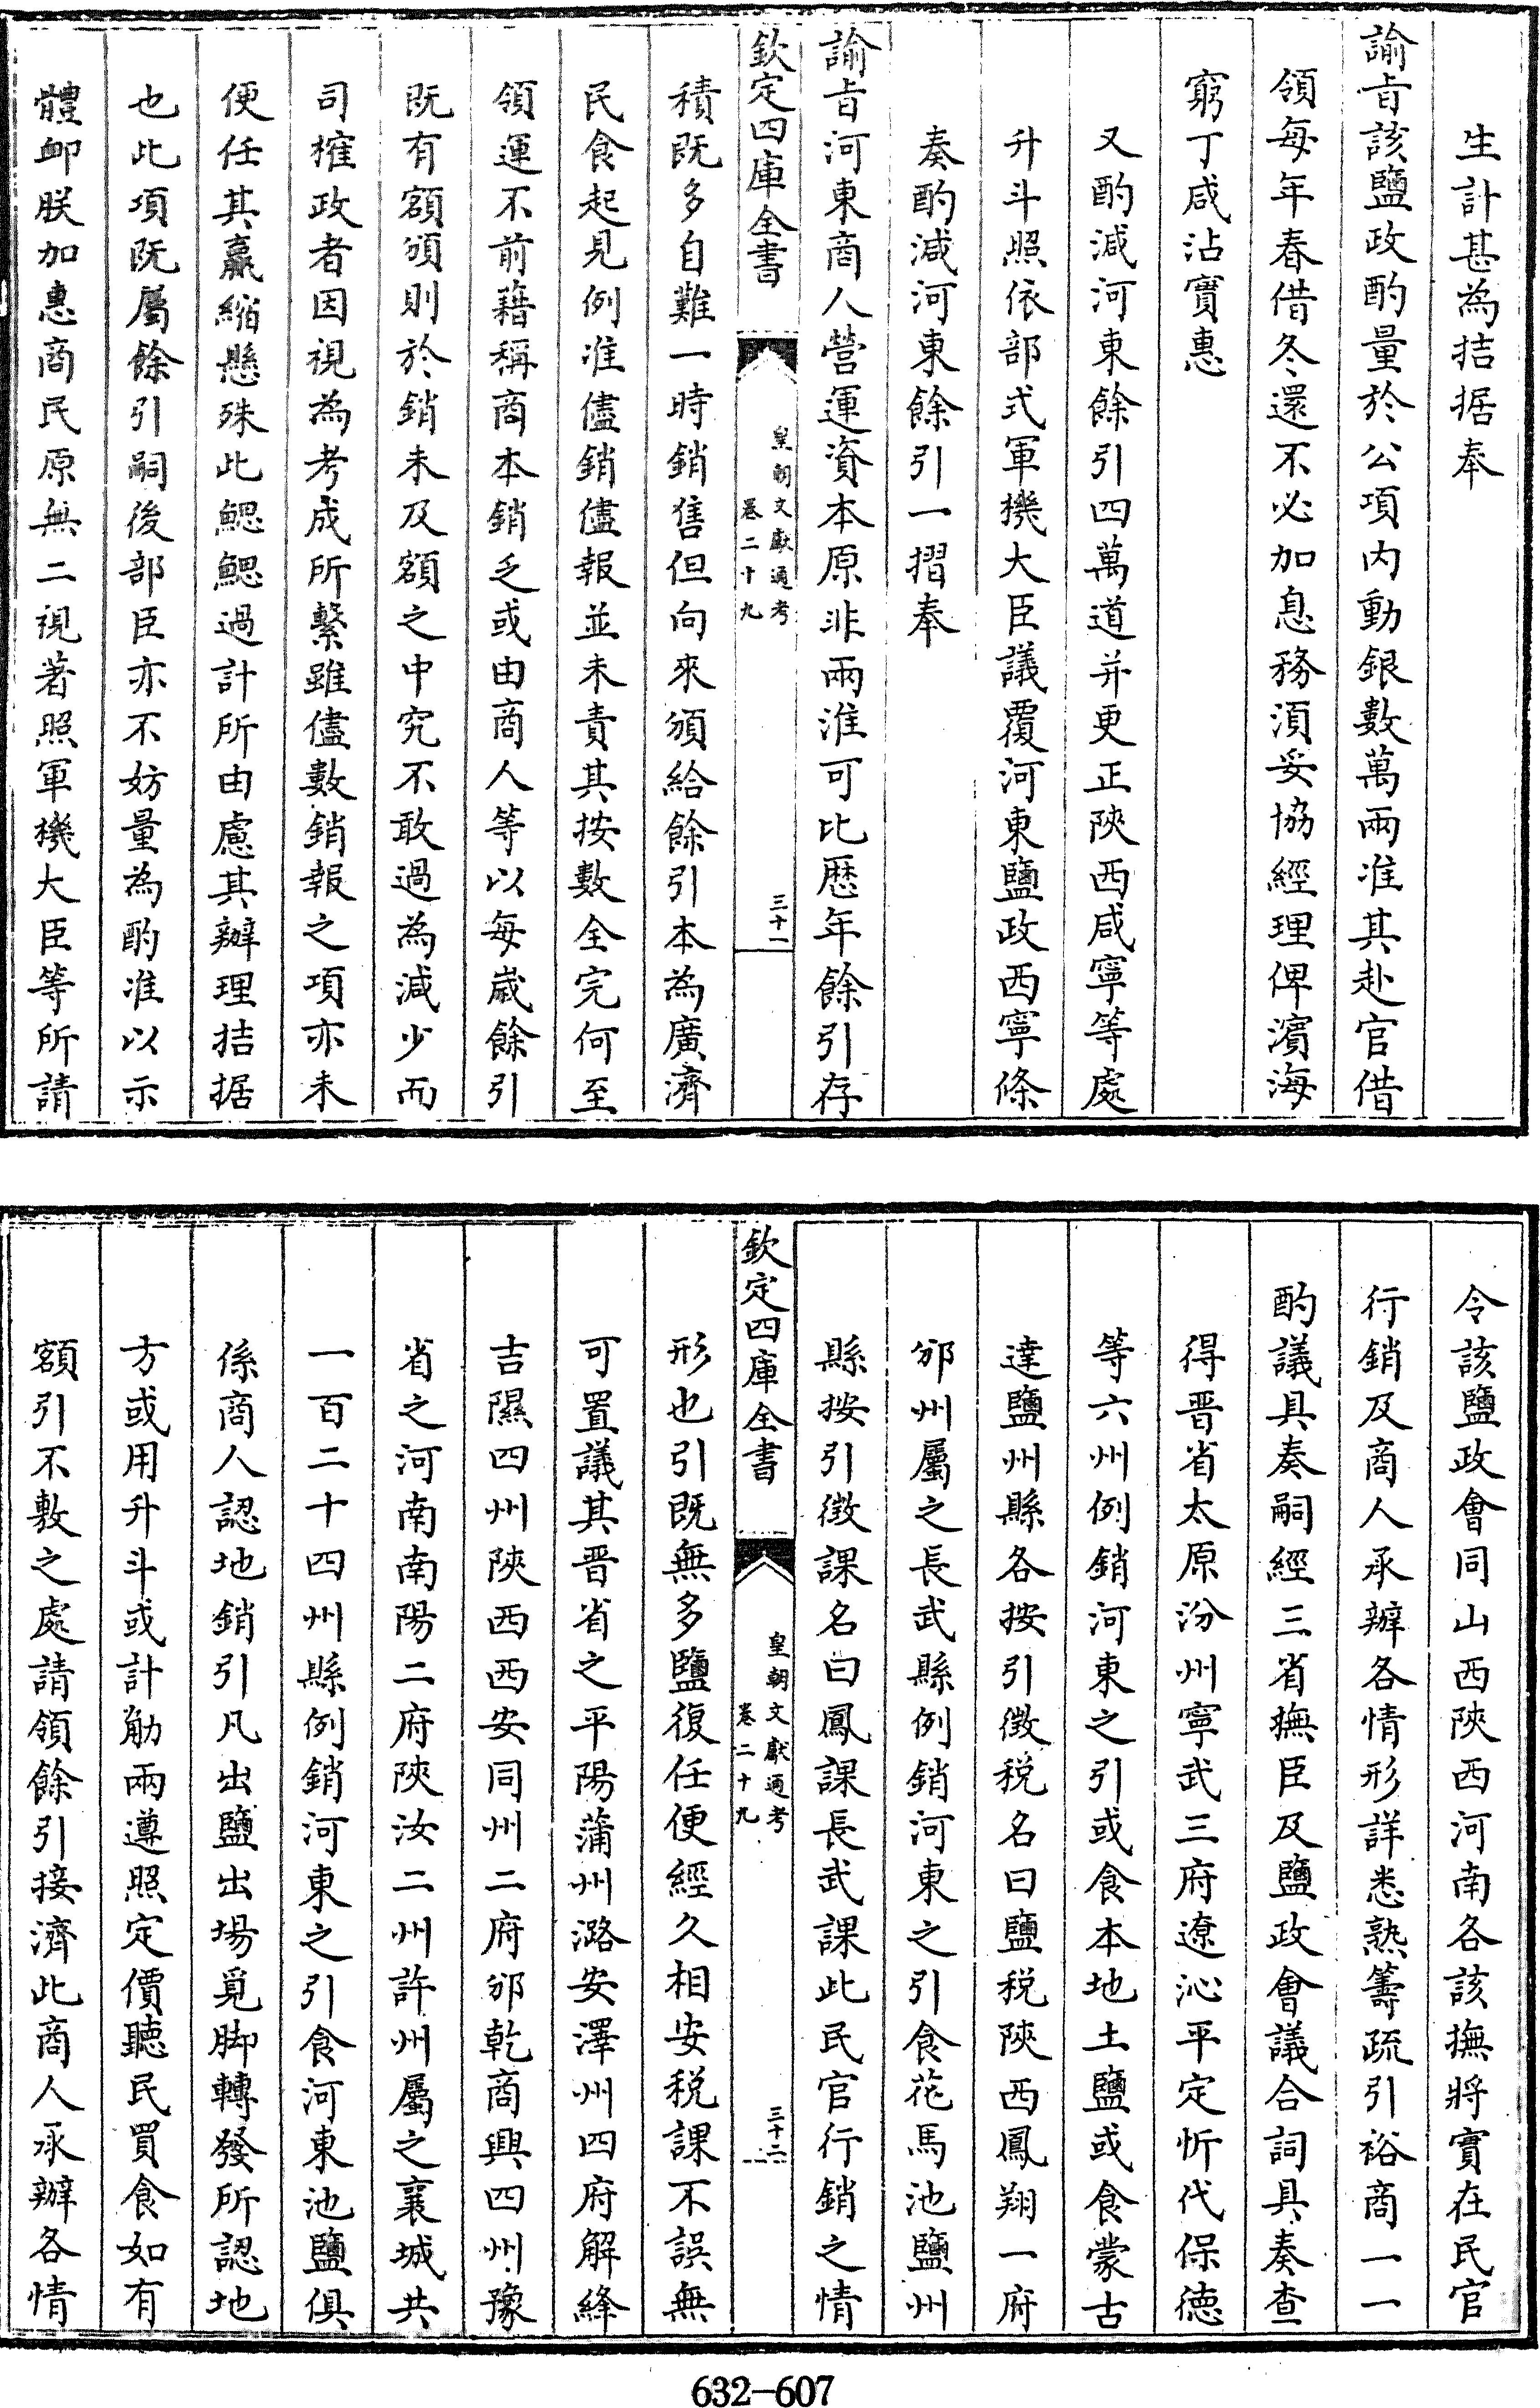 生計甚為拮据奉
諭㫖該鹽政酌量於公項内動銀數萬兩准其赴官借
領每年春借冬還不必加息務須妥協經理俾濵海
窮丁咸沾實惠
又酌減河東餘引四萬道并更正陜西咸寧等處
升斗照依部式軍機大臣議覆河東鹽政西寧條
奏酌減河東餘引一摺奉
諭㫖河東商人營運資本原非兩淮可比歴年餘引存
欽定四庫全書
皇朝文獻通考
卷二十九
三十一
積既多自難一時銷售但向來頒給餘引本為廣濟
民食起見例准儘銷儘報並未責其按數全完何至
領運不前藉稱商本銷乏或由商人等以每嵗餘引
既有額頒則於銷未及額之中究不敢過為減少而
司𣙜政者因視為考成所繫雖儘數銷報之項亦未
便任其贏縮懸殊此鰓鰓過計所由慮其辦理拮据
也此項既屬餘引嗣後部臣亦不妨量為酌准以示
體䘏朕加惠商民原無二視著照軍機大臣等所請
令該鹽政會同山西陜西河南各該撫將實在民官
行銷及商人承辦各情形詳悉熟籌疏引裕商一一
酌議具奏嗣經三省撫臣及鹽政會議合詞具奏查
得晉省太原汾州寧武三府遼沁平定忻代保徳
等六州例銷河東之引或食本地土鹽或食蒙古
達鹽州縣各按引徴税名曰鹽税陜西鳳翔一府
邠州屬之長武縣例銷河東之引食花馬池鹽州
縣按引徴課名曰鳳課長武課此民官行銷之情
欽定四庫全書
皇朝文獻通考
卷二十九
三十二
形也引既無多鹽復任便經久相安税課不誤無
可置議其晉省之平陽蒲州潞安澤州四府解絳
吉隰四州陜西西安同州二府邠乾商興四州豫
省之河南南陽二府陜汝二州許州屬之襄城共
一百二十四州縣例銷河東之引食河東池鹽俱
係商人認地銷引凡出鹽出場覓脚轉發所認地
方或用升斗或計觔兩遵照定價聽民買食如有
額引不敷之處請領餘引接濟此商人承辦各情
632-607